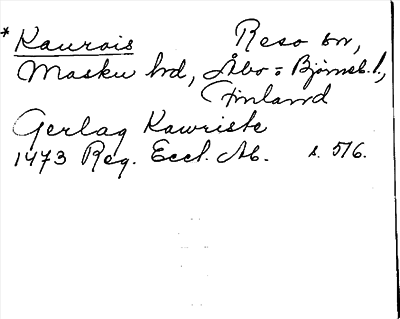 * Kaurois Reso sn,
Masku hd, Åbo = Björneb. l.,
Finland
Gerlag Kawriste
1473 Reg. Eccl. Ab. s. 516.